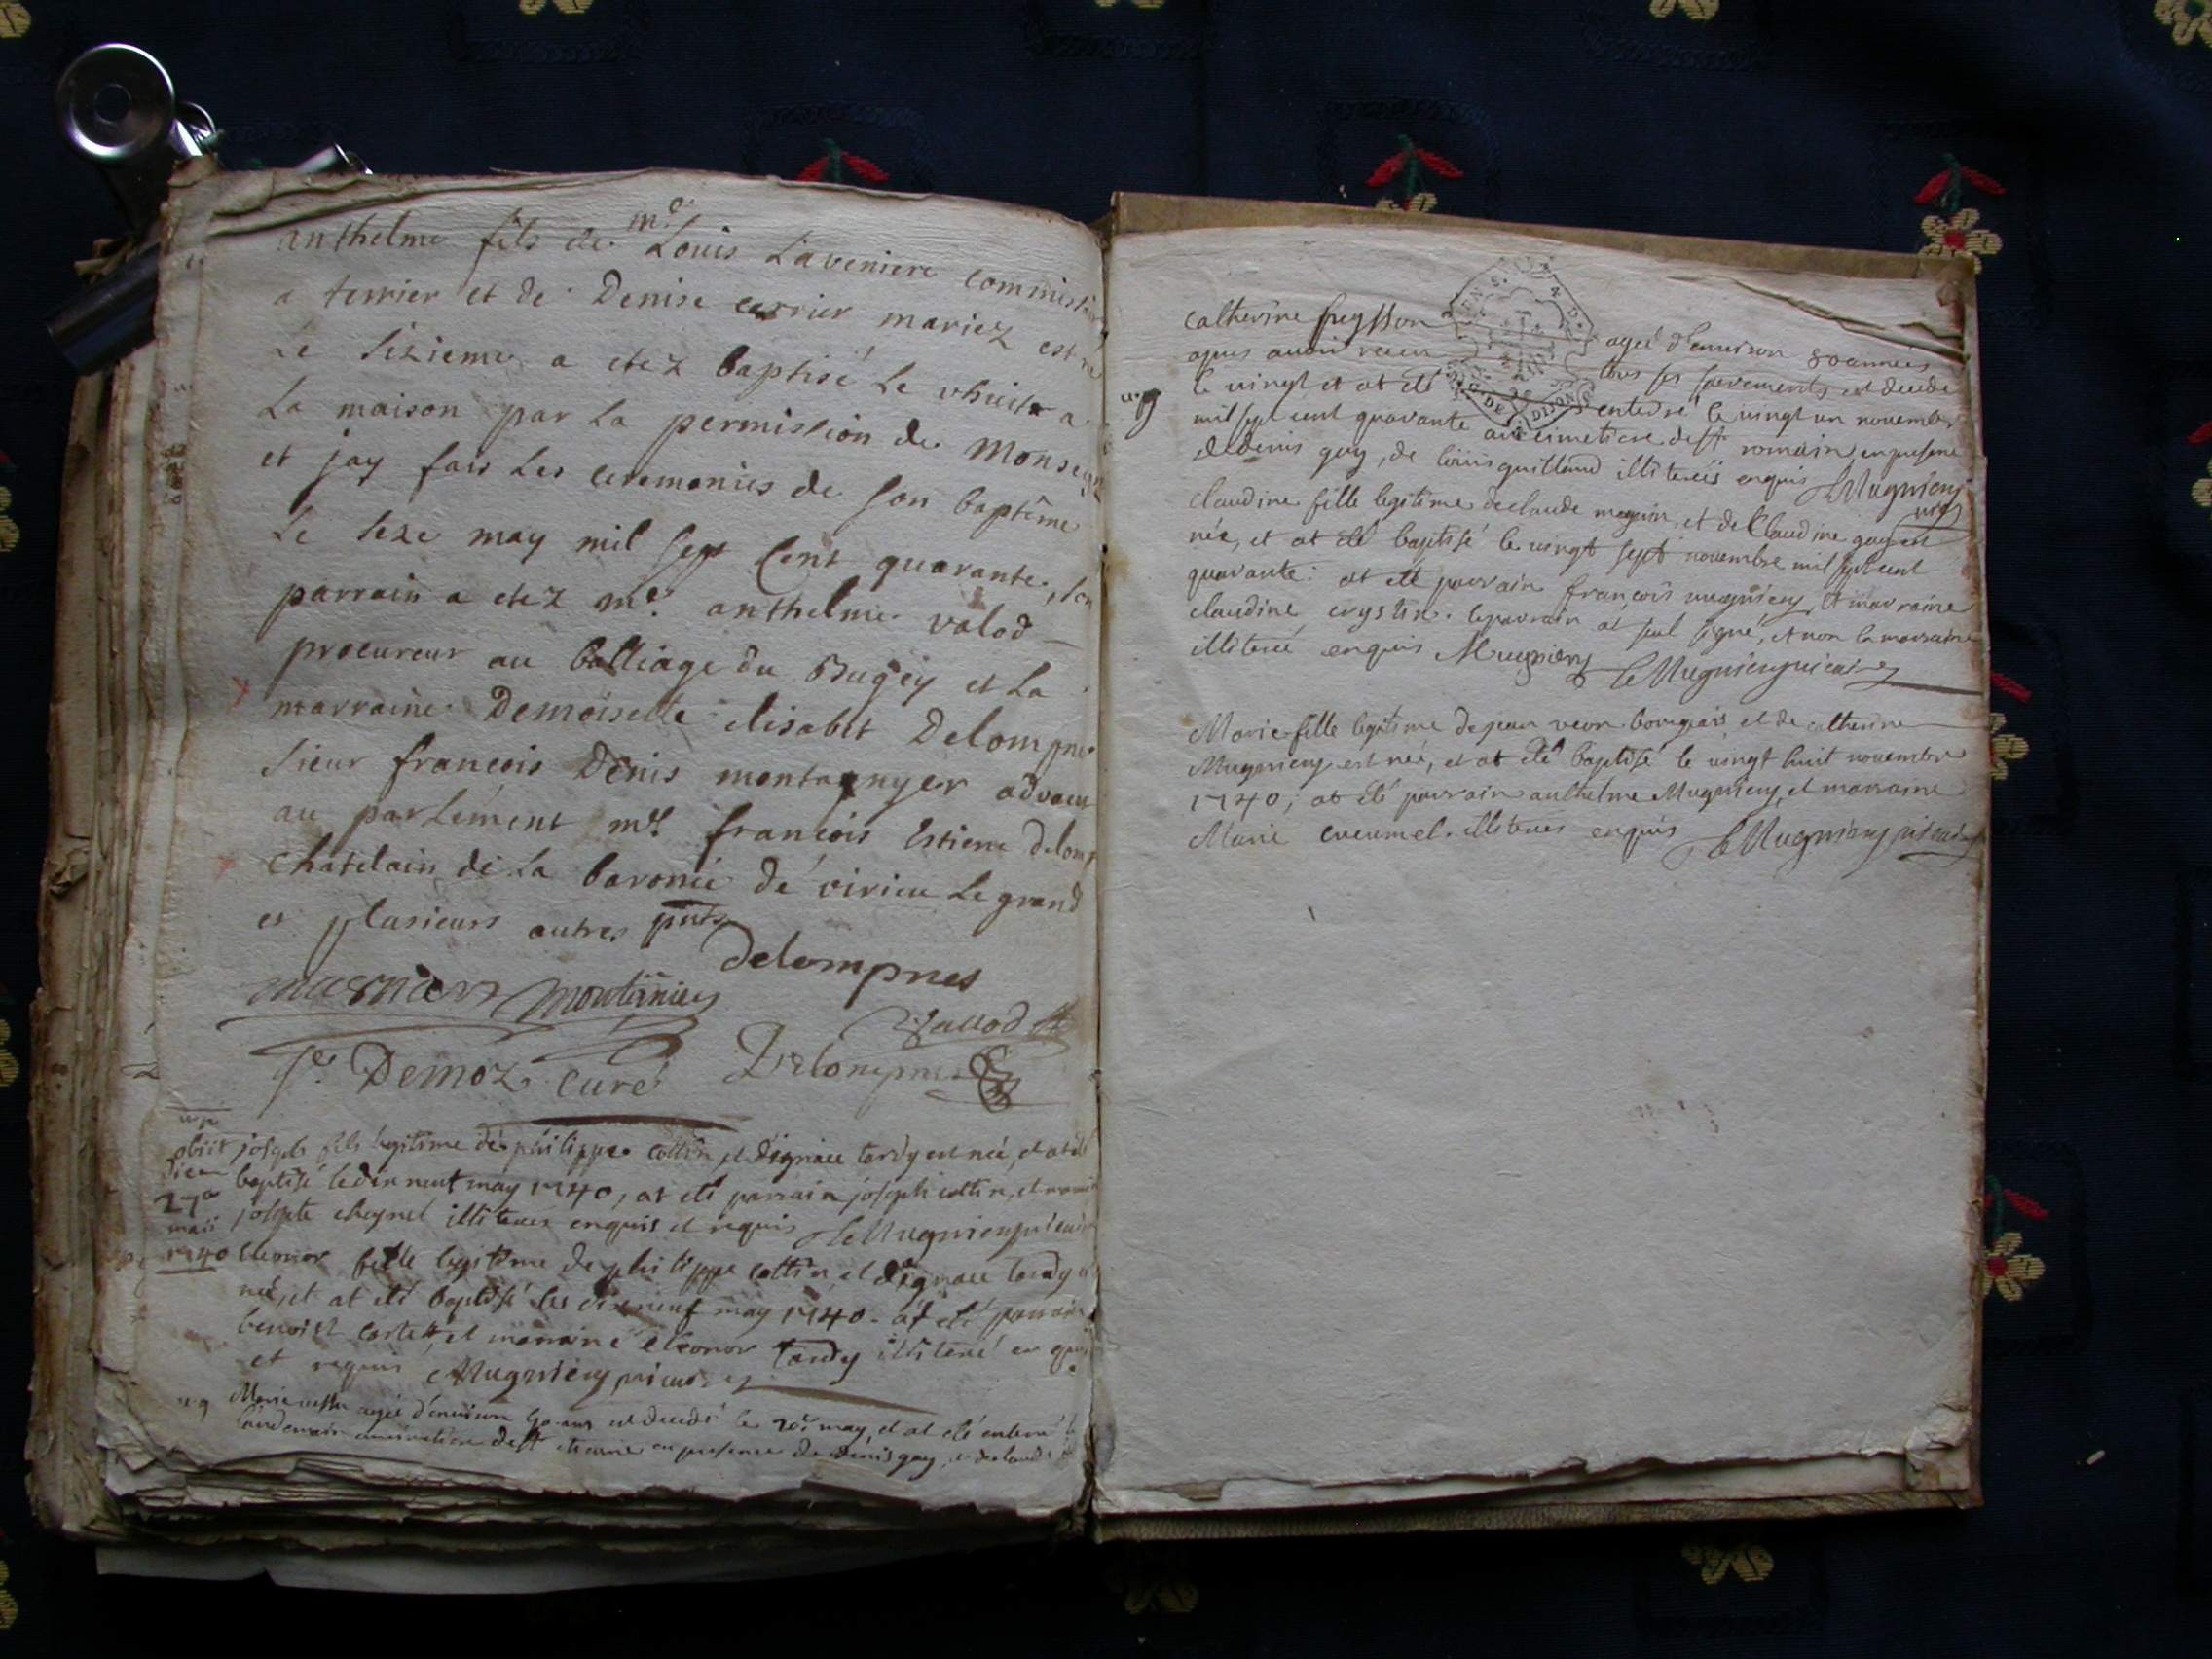 anthelme fils de me Louis Laveniere commissaire
a terrier et de Denise carrier mariez est né
Le sizieme a etez baptisé Le vhuit a
La maison par La permission de Monseigr
et jay fais Les ceremonies de son baptême
Le seze may mil sept cent quarante, son
parrain a etez me anthelme valod
procureur au balliage du Bugey et La
marraine Demoiselle elisabet Delompnes
sieur francois Denis montagnyer advocat
au parlement me francois Estiene delomp
chatelain de La baronie de virieu Le grand
et plusieurs autres pnts
delompnes
montanier
vallod
Demoz curé Delompnes
obiit
die
27a
maii
1740
joseph fils legitime de philippe cottin et dignace tardy est née, et at été
baptisé le dix neuf may 1740, at eté parrain joseph cottin, et marraine
josepte cheynel illiterés enquis et requis Mugniery vicaire
Eleonor fille legitime de philippe cottin, et dignace tardy est
née, et at eté baptisé les dix neuf may 1740. at eté parrain
benoist et marraine eleonor tardy illiteré enquis
et requis Mugniery vicaire
Marie agée d'environ 40 ans est decedé le 20e may, et at eté enterré le
lendemain au cimetiere de st etienne en presence de denis gay, et de claude
catherine freysson agée d'environ 80 années
apres avoir receu tous ses sacrements est decedé
le vingt et at eté enterré le vingt un novembre
mil sept cent quarante au cimetiere de st romain en presence
de denis guy, de louis guilland illiterés enquis Mugniery
vic
claudine fille legitime de claude magnin et de Claudine guy est
née, et at eté baptisé le vingt sept novembre mil sept cent
quarante: at eté parrain françois mugniery et marraine
claudine crystin. le parrain at seul signé, et non la marraine
illiteré enquis Mugniery Mugniery vicaire
Marie fille legitime de jean veon bourgeois et de catherine
Mugniery est née, et at eté baptisé le vingt huit novembre
1740; at eté parrain anthelme Mugniery, et marraine
Marie cucumel. illiteres enquis Mugniery vicaire